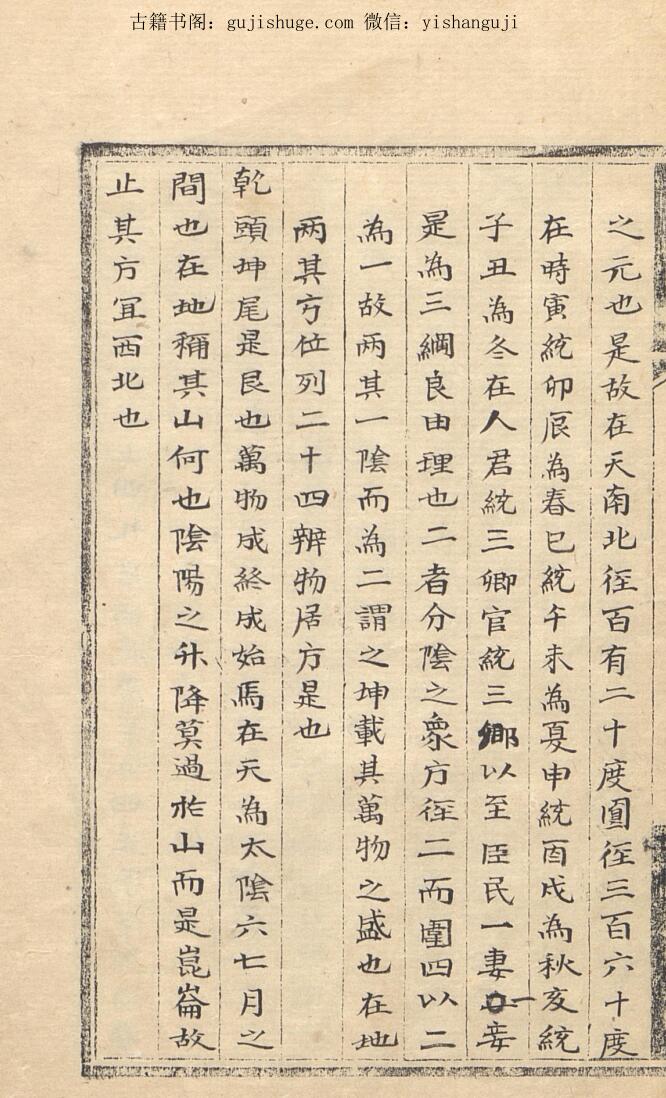 古籍书阁：gujishuge.com 微信：yishanguji
之元也是故在天南北徑百有二十度圓徑三百六十度
在時寅統卯辰為春巳統午未為夏申統酉戌為秋亥統
子丑為冬在人君統三卿官統三鄉以至臣民一妻一妾
是為三綱良由理也二者分陰之象方徑二而圍四以二
為一故两其一陰而為二謂之坤載其萬物之盛也在地
两其方位列二十四辨物居方是也
乾頭坤尾是艮也萬物成終成始馬在天為太陰六七月之
間也在地稱其山何也陰陽之升降莫過於山而是崑崙故
止其方冝西北也